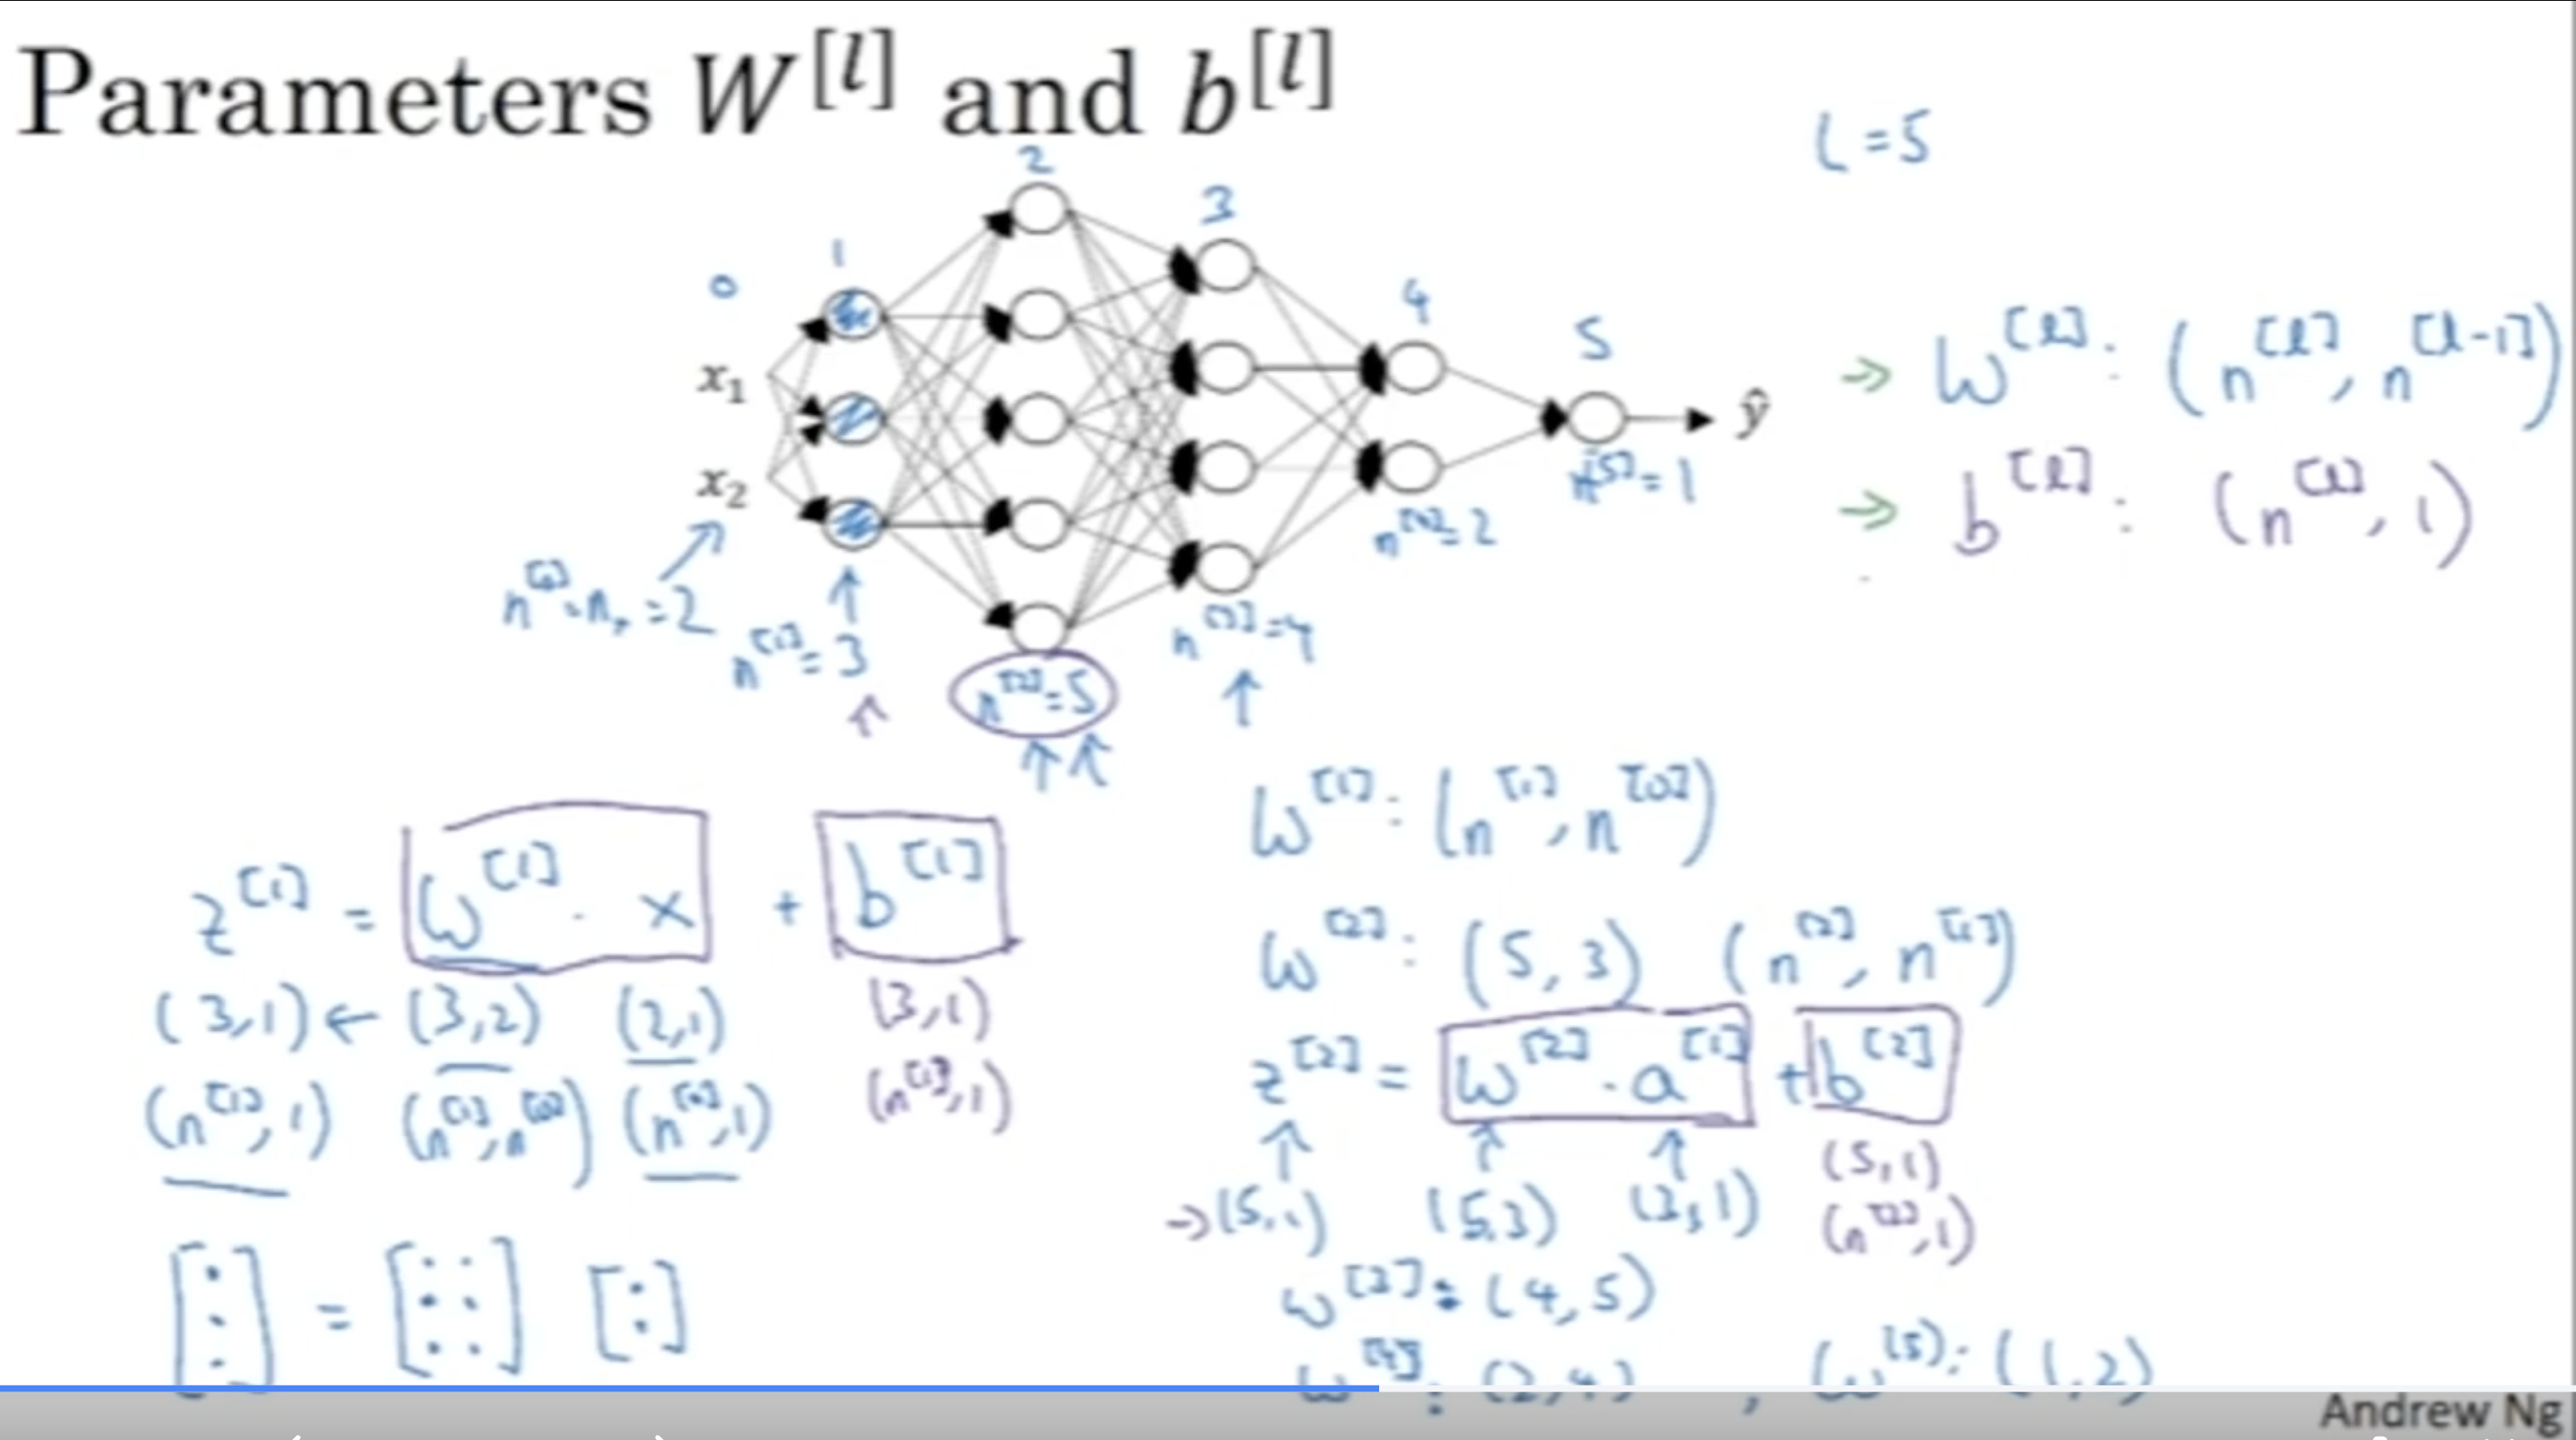 Parameters W^[l] and b^[l]
L = 5
0 1 2 3 4 5
x₁
x₂
ŷ
n^[0] = nₓ = 2
n^[1] = 3
n^[2] = 5
n^[3] = 4
n^[4] = 2
n^[5] = 1
→ W^[l]: (n^[l], n^[l-1])
→ b^[l]: (n^[l], 1)
z^[1] = W^[1] · x + b^[1]
(3,1) ← (3,2) (2,1) (3,1)
(n^[1], 1) (n^[1], n^[0]) (n^[0], 1) (n^[1], 1)
[ ⋮ ] = [ : : ] [ : ]
W^[1]: (n^[1], n^[0])
W^[2]: (5, 3) (n^[2], n^[1])
z^[2] = W^[2] · a^[1] + b^[2]
→ (5,1) (5,3) (3,1) (5,1)
(n^[2], 1)
W^[3]: (4, 5)
W^[4]: (2, 4), W^[5]: (1, 2)
Andrew Ng